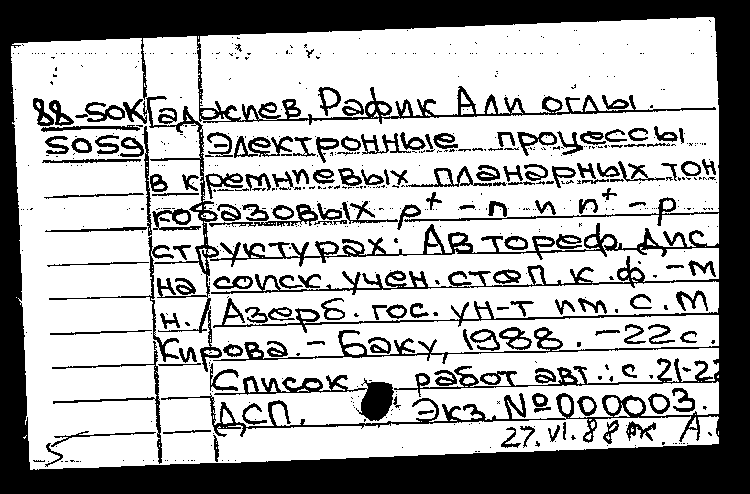 88-50К Гаджиев, Рафик Али оглы.
5059 Электронные процессы
в кремниевых планарных тон-
кобазовых p⁺ - n и n⁺ - p
структурах: Автореф. дис.
на соиск. учен. степ. к. ф. - м.
н. / Азерб. гос. ун-т им. С. М.
Кирова. - Баку, 1988. - 22 с.
Список работ авт.: с. 21-22
ДСП. Экз. №000003.
27.VI.88 А.
5